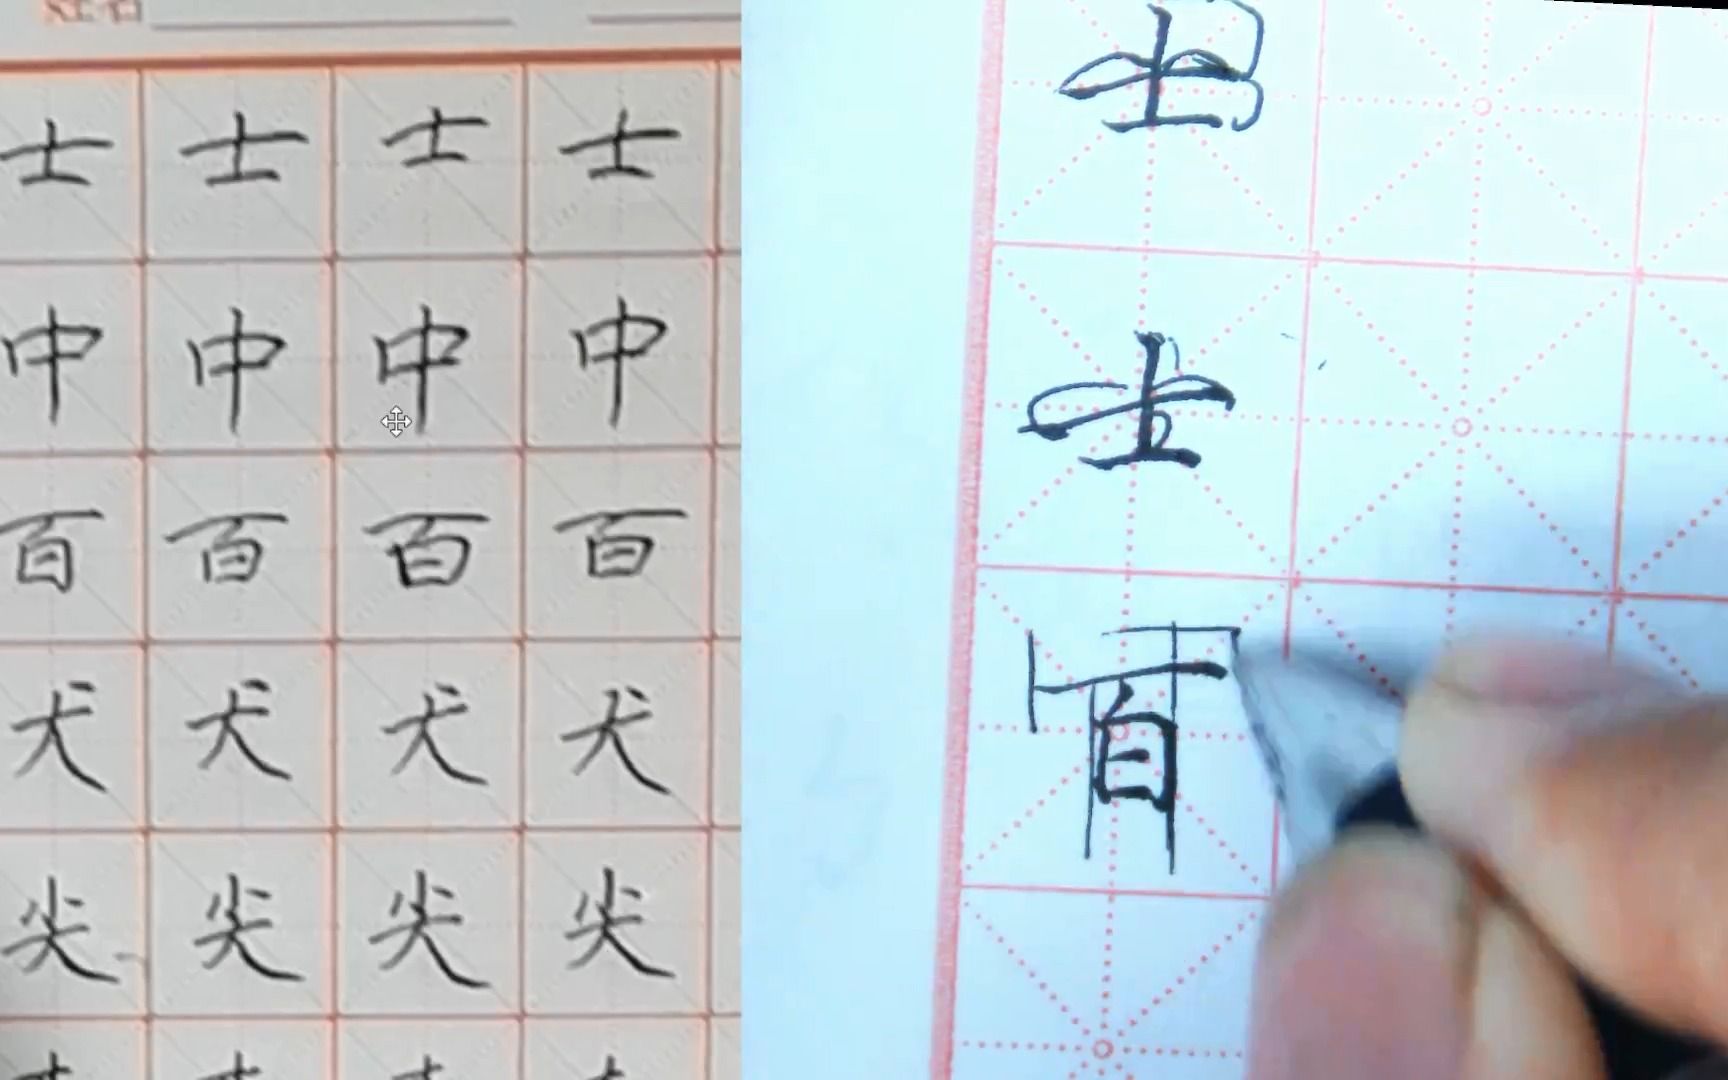 士 士 士 士
中 中 中 中
百 百 百 百
犬 犬 犬 犬
尖 尖 尖 尖
士
士
百